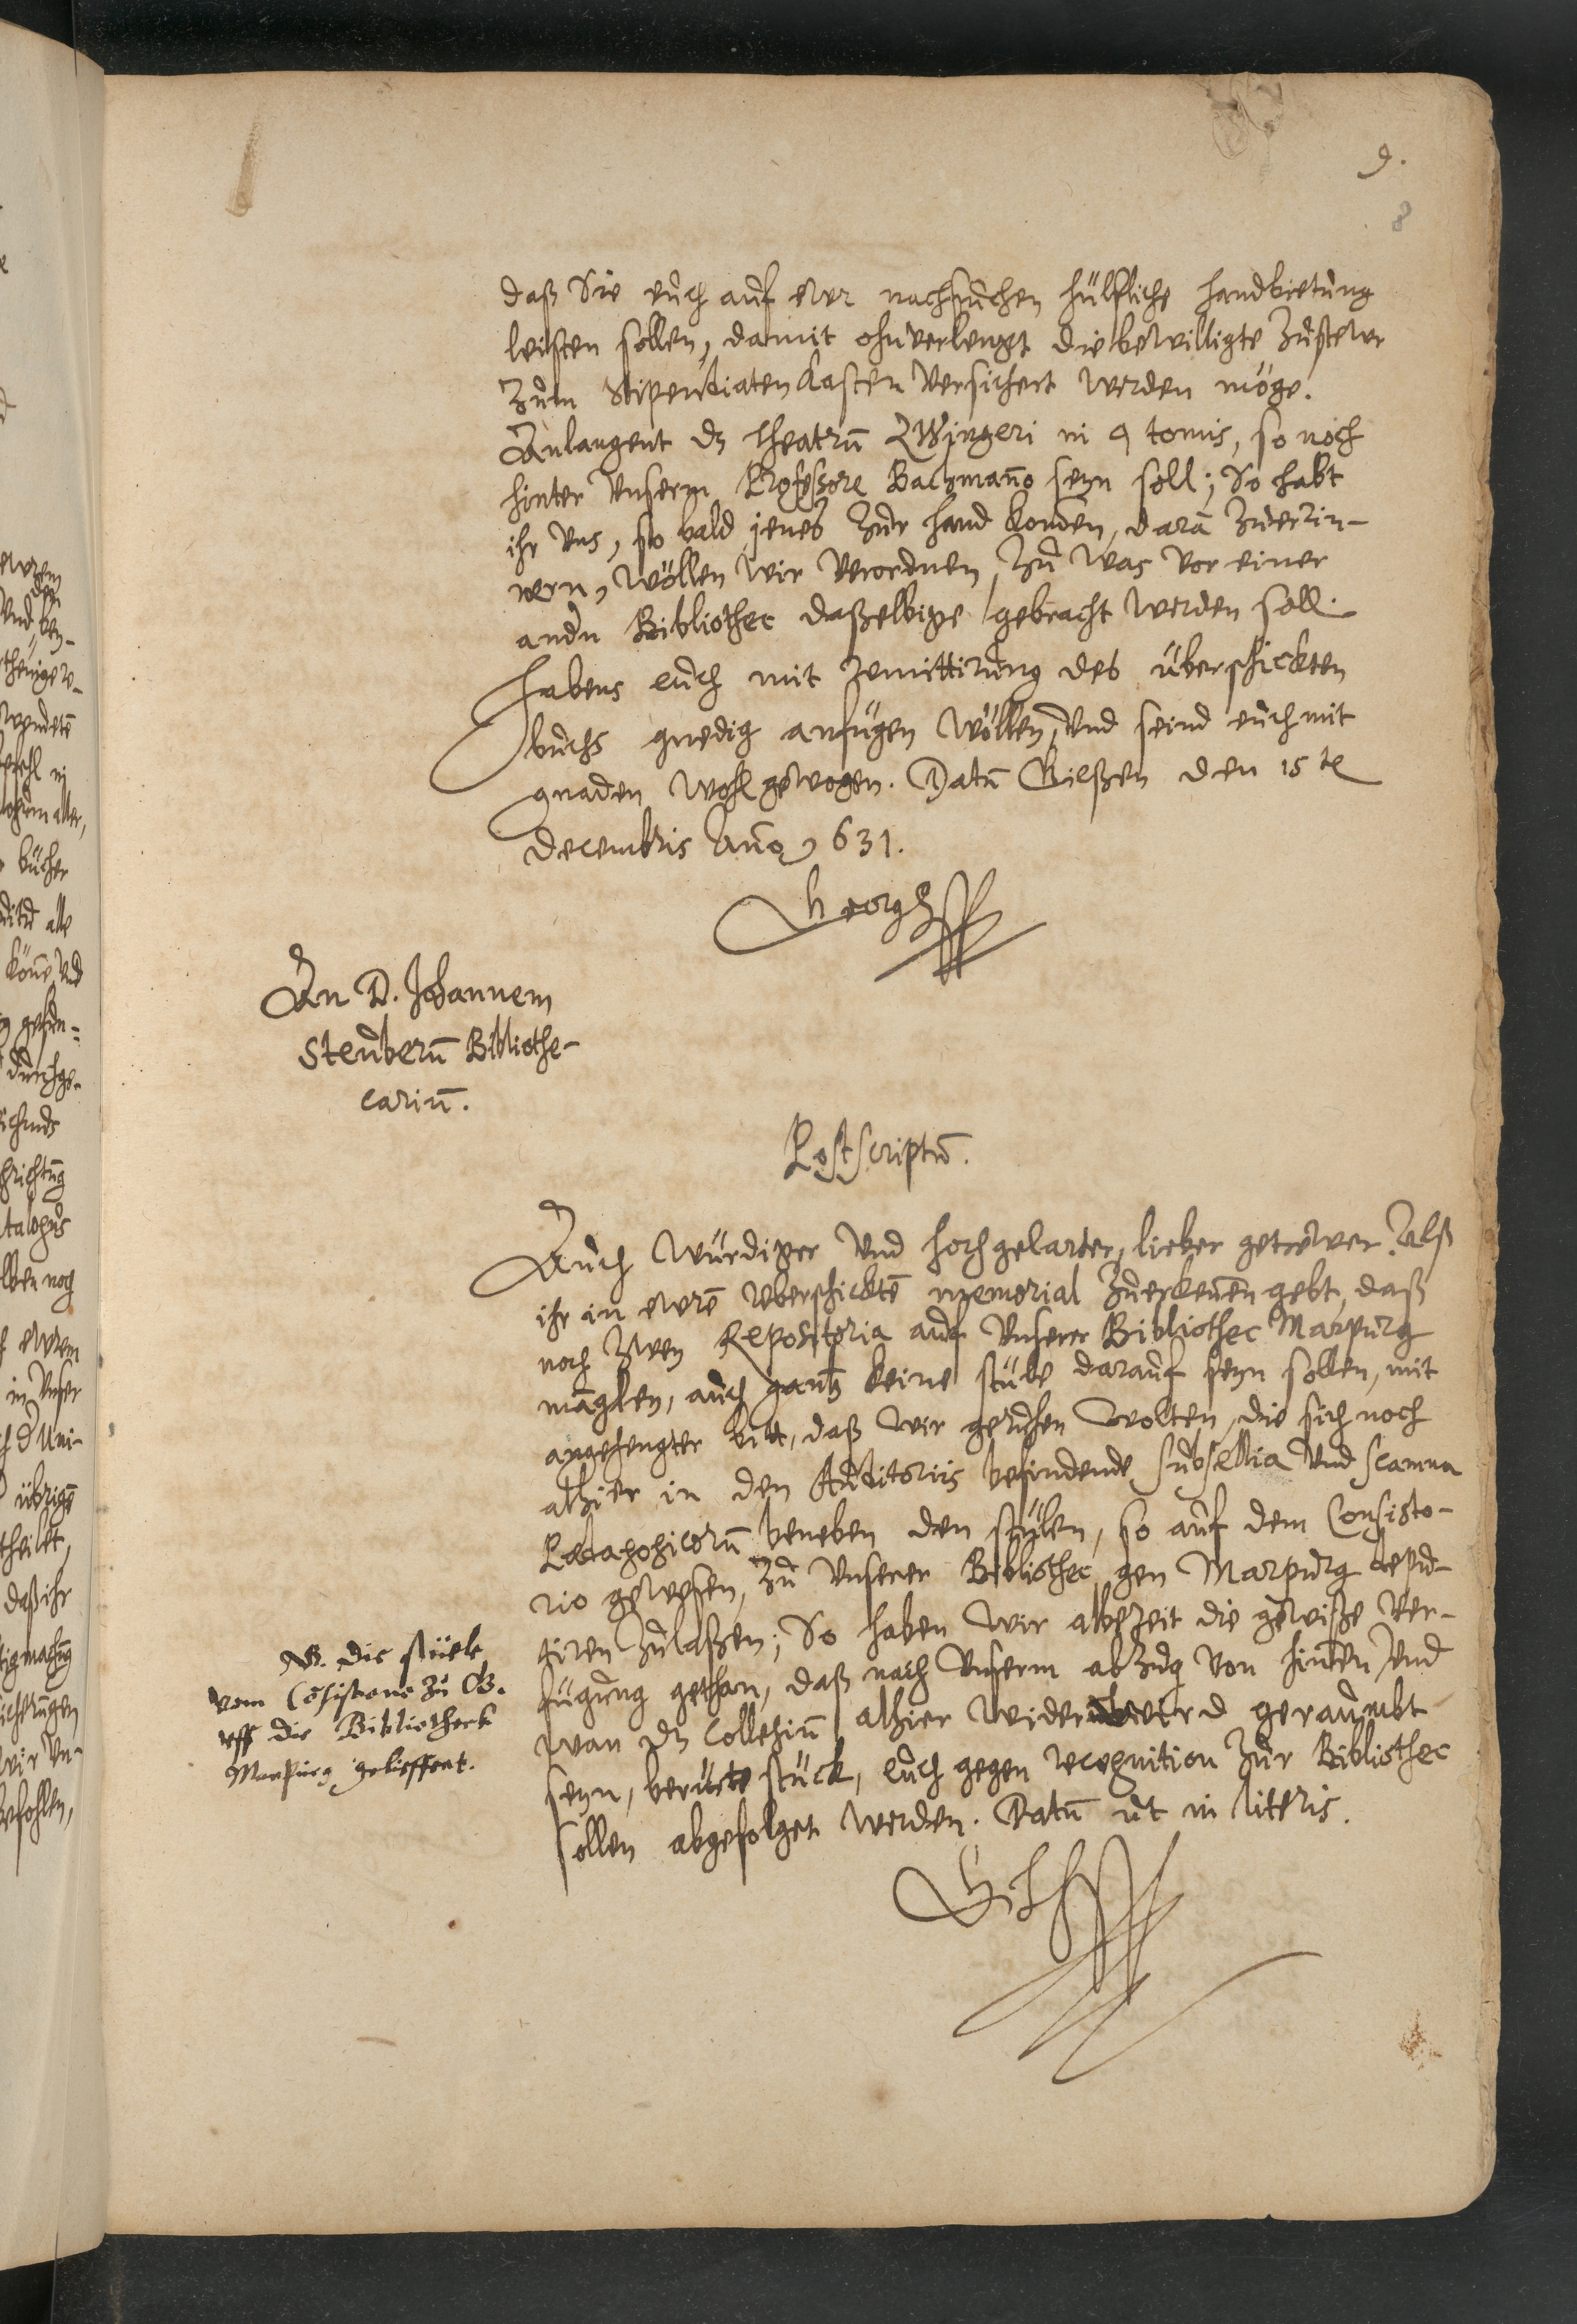 9.
8
daß Sie euch auf ewr nachsuchen hülfliche handbietung
leisten sollen, damit ohnverlengt die bewilligte Zustewr
Zum Stipendiaten Kasten versichert werden möge.
Anlangent dz theatrū Zwingeri in 9 tomis, so noch
hinter Unserm Professore Bachmano seyn soll; So habt
ihr Uns, so bald jenes Zur hand komen, daran Zuerin-
nern, wöllen wir verordnen, Zu was vor einer
andn Bibliothec daßelbige gebracht werden soll.
Habens euch mit remittirung des überschickten
buchs gnedig anfügen wöllen, Und seind euch mit
gnaden wohl gewogen. Datū Gießen den 15 te
Decembris Año 631.
Georg
An D. Johannem
Steuberū Bibliothe-
cariū.
Postscriptū.
Auch Würdiger Und hochgelarter, lieber getrewer. Alß
ihr in ewrē uberschicktē memorial Zuerkennen gebt, daß
noch Zwey Repositoria auf Unserer Bibliothec Marpurg
manglen, auch gantz keine stüle darauf seyn sollen, mit
angehengter bitt, daß wir geruhen wolten, die sich noch
alhier in den Auditoriis befindende subsellia Und scamna
Paedagogicorū beneben den stülen, so auf dem Consisto-
rio gewesen, Zu Unserer Bibliothec gen Marpurg depu-
tiren Zulaßen; So haben wir albezeit die gewiße Ver-
fügung gethan, daß nach Unserm abzug von hinnen, Und
wan dz Collegiū alhier wider wird geraumbt
seyn, berürte stück, euch gegen recognition Zur Bibliothec
sollen abgefolget werden. Datū ut in literis.
NB. die stüele
vom Cōsistorio zu G.
uff die Bibliotheck
Marpurg gelieffert.